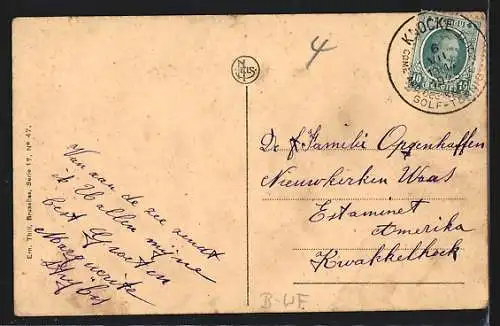 4
KNOCKE
GOLF-
Van aan de zee zendt
ik U allen mijne
best Groeten
Marguerite
De f Familie Opgenhaffen
Nieuwkerken Waas
Estaminet
Amerika
Kwakkelhoek
Ern. Thill, Bruxelles, Série 17, N° 47.
B-WF